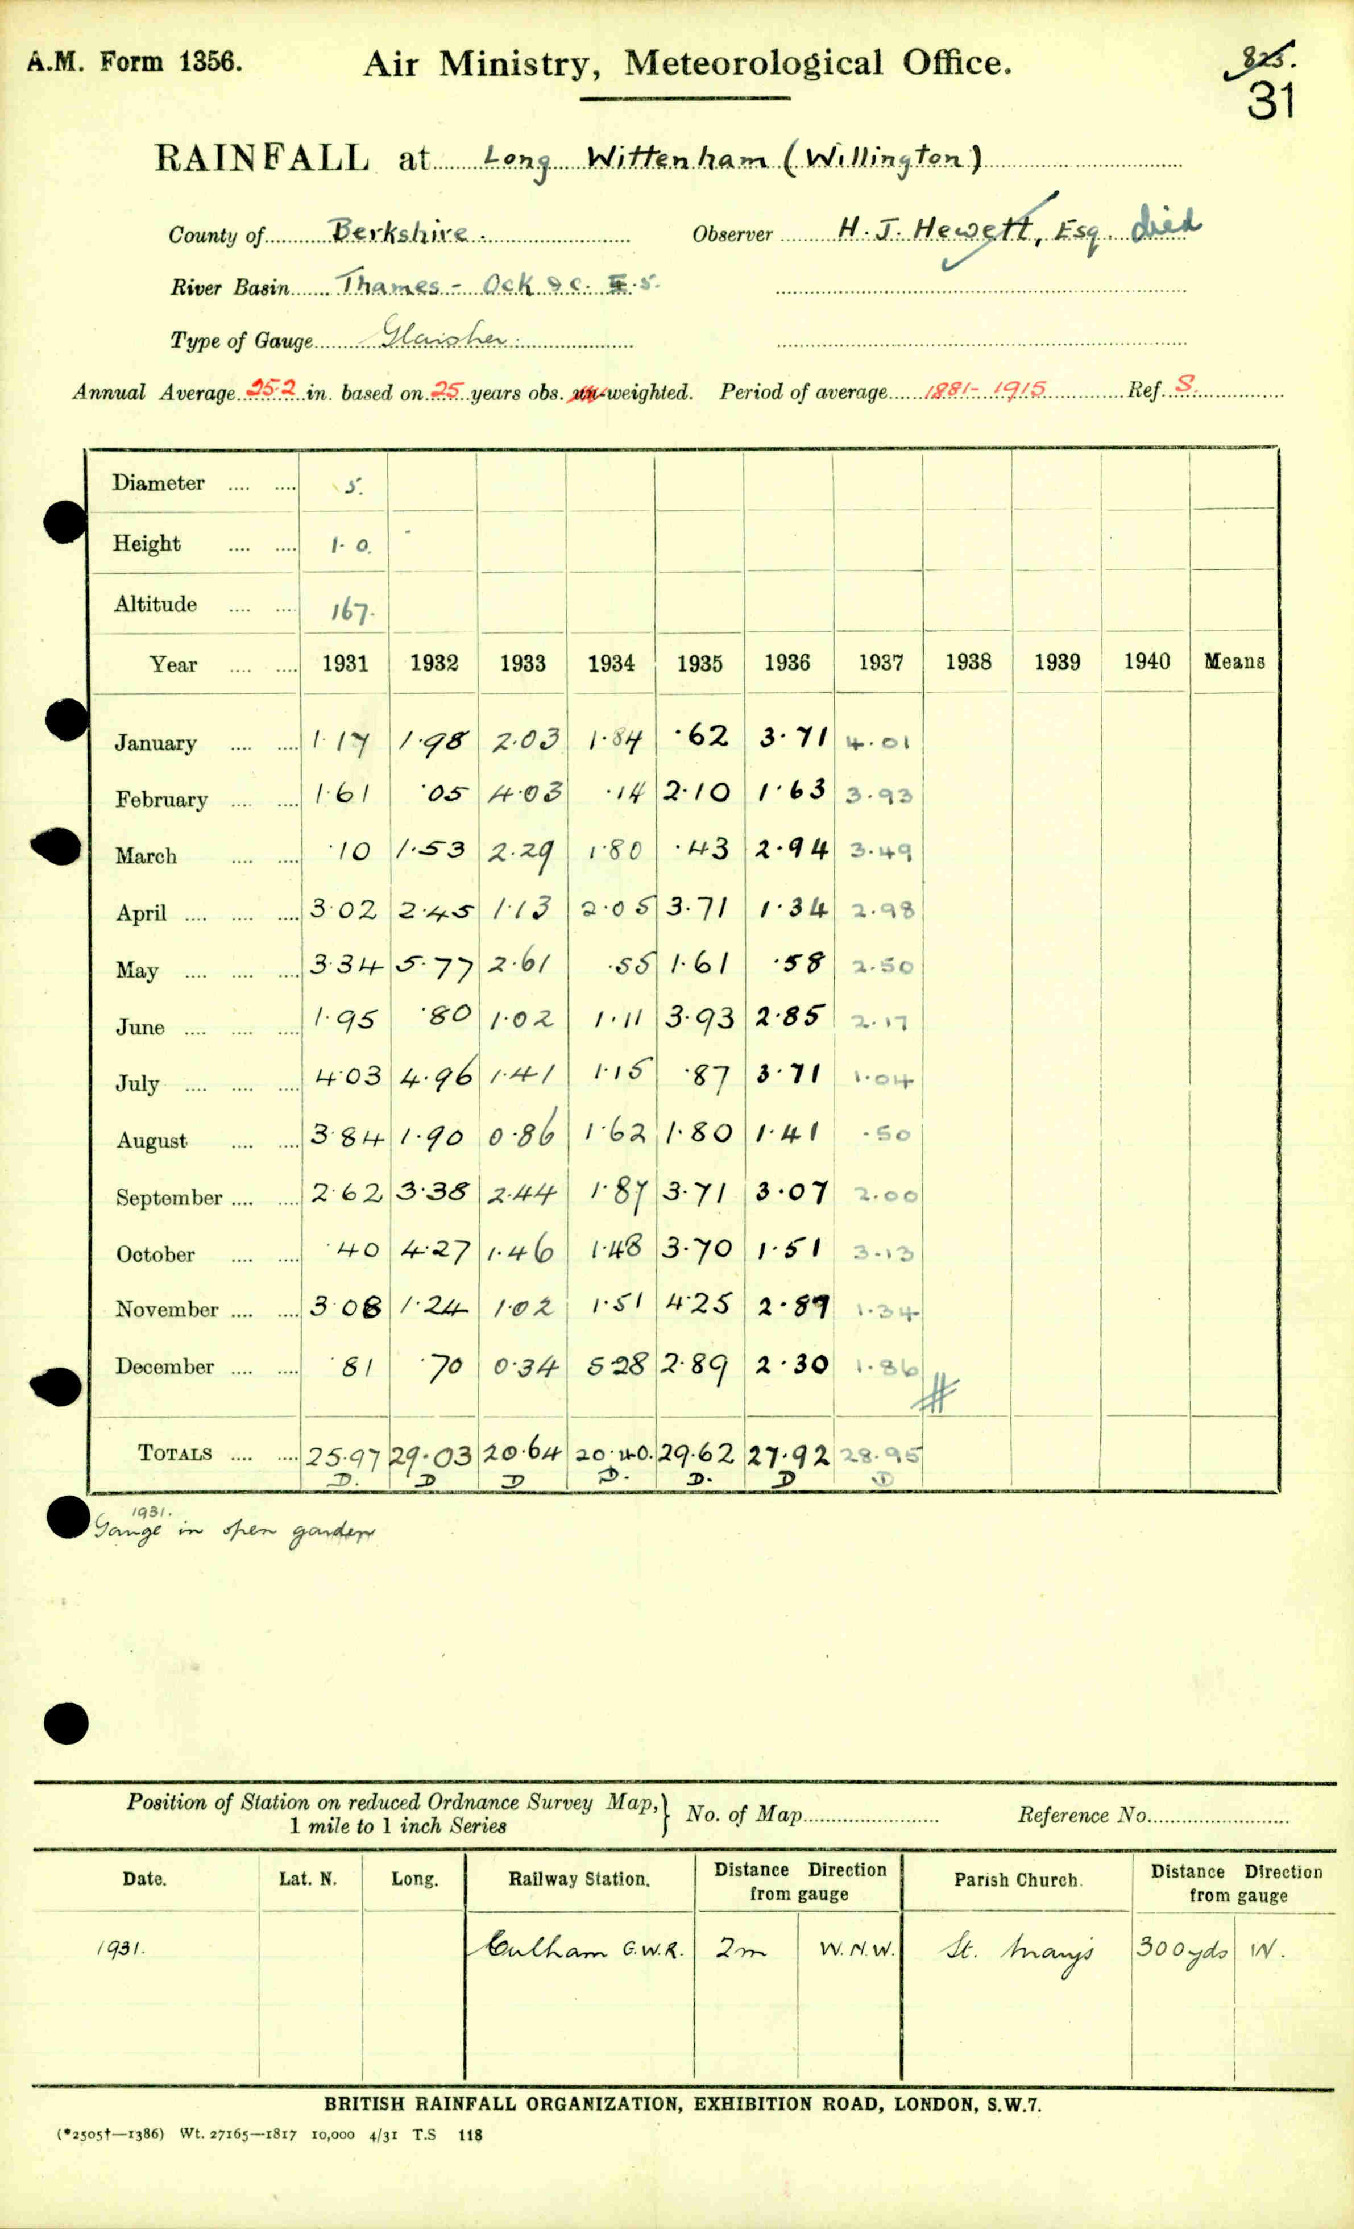 A.M. Form 1356. Air Ministry, Meteorological Office. 825.
31
RAINFALL at Long Wittenham (Willington)
County of Berkshire. Observer H. J. Hewett, Esq. died
River Basin Thames - Ock &c. 5.
Type of Gauge Glaisher.
Annual Average 25.2 in. based on 25 years obs. un-weighted. Period of average 1881-1915 Ref. S.
Diameter .... .... 5.
Height .... .... 1.0.
Altitude .... .... 167.
Year .... .... 1931 1932 1933 1934 1935 1936 1937 1938 1939 1940 Means
January .... .... 1.17 1.98 2.03 1.84 .62 3.71 4.01
February .... .... 1.61 .05 4.03 .14 2.10 1.63 3.93
March .... .... .10 1.53 2.29 1.80 .43 2.94 3.49
April .... .... .... 3.02 2.45 1.13 2.05 3.71 1.34 2.98
May .... .... .... 3.34 5.77 2.61 .55 1.61 .58 2.50
June .... .... .... 1.95 .80 1.02 1.11 3.93 2.85 2.17
July .... .... .... 4.03 4.96 1.41 1.15 .87 3.71 1.04
August .... .... 3.84 1.90 0.86 1.62 1.80 1.41 .50
September .... .... 2.62 3.38 2.44 1.87 3.71 3.07 2.00
October .... .... .40 4.27 1.46 1.48 3.70 1.51 3.13
November .... .... 3.08 1.24 1.02 1.51 4.25 2.87 1.34
December .... .... .81 .70 0.34 5.28 2.89 2.30 1.86
#
TOTALS .... .... 25.97 29.03 20.64 20.40. 29.62 27.92 28.95
D. D D D. D. D D
1931.
Gauge in open garden
Position of Station on reduced Ordnance Survey Map, } No. of Map Reference No.
1 mile to 1 inch Series
Date. Lat. N. Long. Railway Station. Distance Direction from gauge Parish Church. Distance Direction from gauge
1931. Culham G.W.R. 2m W.N.W. St. Mary's 300yds W.
BRITISH RAINFALL ORGANIZATION, EXHIBITION ROAD, LONDON, S.W.7.
(*2505†—1386) Wt. 27165—1817 10,000 4/31 T.S 118